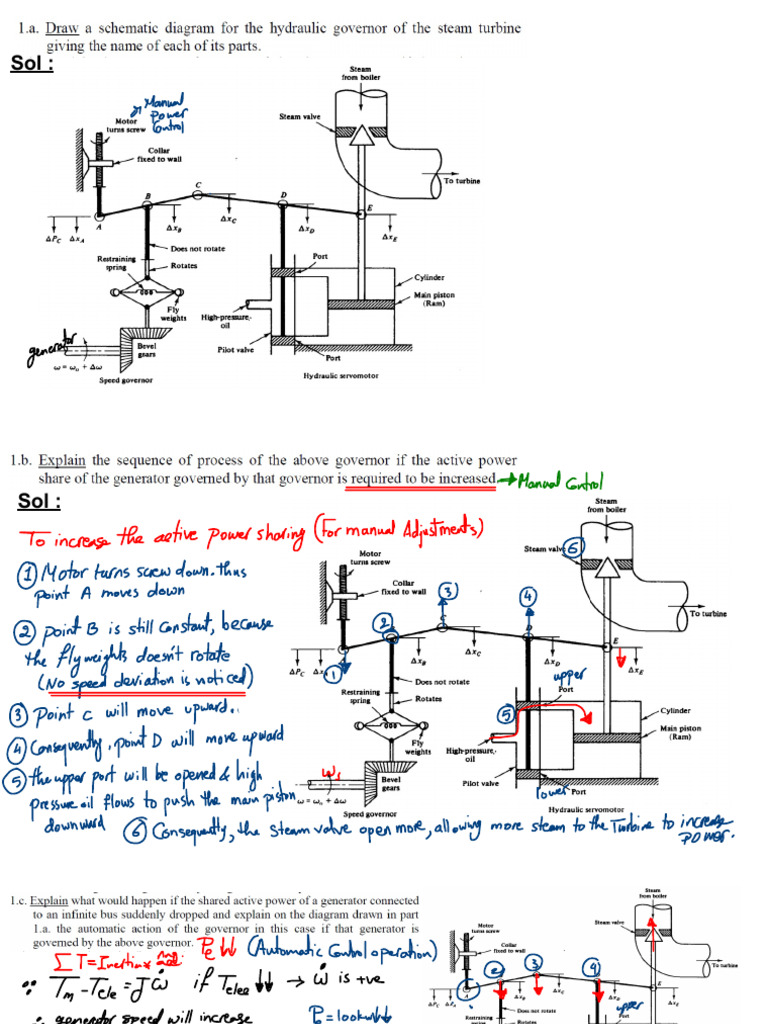 1.a. Draw a schematic diagram for the hydraulic governor of the steam turbine
giving the name of each of its parts.
Sol :
Steam
from boiler
Manual
Power
Control
Motor
turns screw
Steam valve
Collar
fixed to wall
To turbine
C
B
D
E
A
ΔxB
ΔxC
ΔxD
ΔxE
ΔPC ΔxA
Does not rotate
Restraining
spring
Rotates
Port
Cylinder
Main piston
(Ram)
Fly
weights
High-pressure
oil
generator
Bevel
gears
Pilot valve
Port
ω = ω0 + Δω
Speed governor
Hydraulic servomotor
1.b. Explain the sequence of process of the above governor if the active power
share of the generator governed by that governor is required to be increased. → Manual Control
Sol :
To increase the active power sharing (For manual Adjustments)
① Motor turns screw down. thus
point A moves down
② point B is still constant, because
the flyweights doesn't rotate
(No speed deviation is noticed)
③ Point c will move upward..
④ Consequently, point D will move upward
⑤ the upper port will be opened & high
pressure oil flows to push the main piston
downward
⑥ Consequently, the steam valve open more, allowing more steam to the Turbine to increase
power.
Steam
from boiler
Steam valve ⑥
Motor
turns screw
Collar
fixed to wall
③
④
②
To turbine
C
D
E
ΔPC ΔxA
①
ΔxB
ΔxC
ΔxD
ΔxE
Does not rotate
upper
Port
Restraining
spring
Rotates
⑤
Cylinder
Main piston
(Ram)
Fly
weights
High-pressure
oil
Bevel
gears
Pilot valve
lower Port
ω = ω0 + Δω
Speed governor
Hydraulic servomotor
1.c. Explain what would happen if the shared active power of a generator connected
to an infinite bus suddenly dropped and explain on the diagram drawn in part
1.a. the automatic action of the governor in this case if that generator is
governed by the above governor. Pe ↓↓ (Automatic Control operation)
ΣT = Inertia x
∵ Tm - Tele = J ω̇ if Telec ↓↓ → ω̇ is +ve
∴ generator speed will increase
Steam
from boiler
Motor
turns screw
Steam valve
Collar
fixed to wall
To turbine
②
③
④
A
E
ΔPC ΔxA
ΔxB
ΔxC
ΔxD
ΔxE
Does not rotate
upper
Port
Restraining